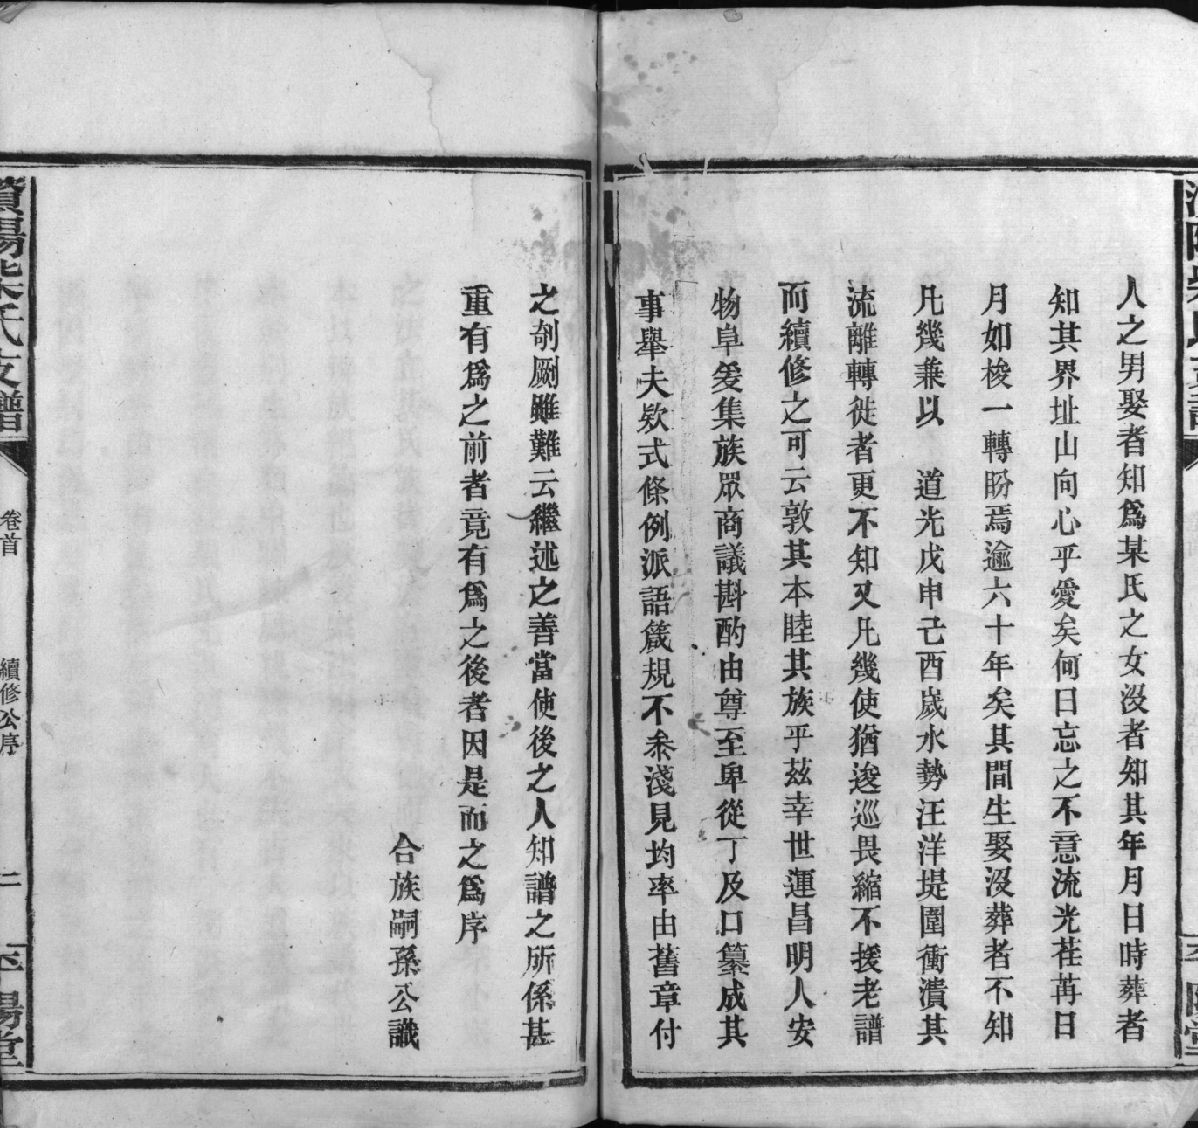 人之男娶者知爲某氏之女沒者知其年月日時葬者
知其界址山向心乎愛矣何日忘之不意流光荏苒日
月如梭一轉盼焉逾六十年矣其間生娶沒葬者不知
凡幾兼以 道光戊申己酉歲水勢汪洋堤圍衝潰其
流離轉徙者更不知又凡幾使猶逡巡畏縮不援老譜
而續修之可云敦其本睦其族乎茲幸世運昌明人安
物阜爰集族眾商議斟酌由尊至卑從丁及口纂成其
事舉夫欵式條例派語箴規不叅淺見均率由舊章付
之剞劂雖難云繼述之善當使後之人知譜之所係甚
重有爲之前者竟有爲之後者因是而之爲序
合族嗣孫公識
氏支譜
卷首
續修公序
二
陽堂